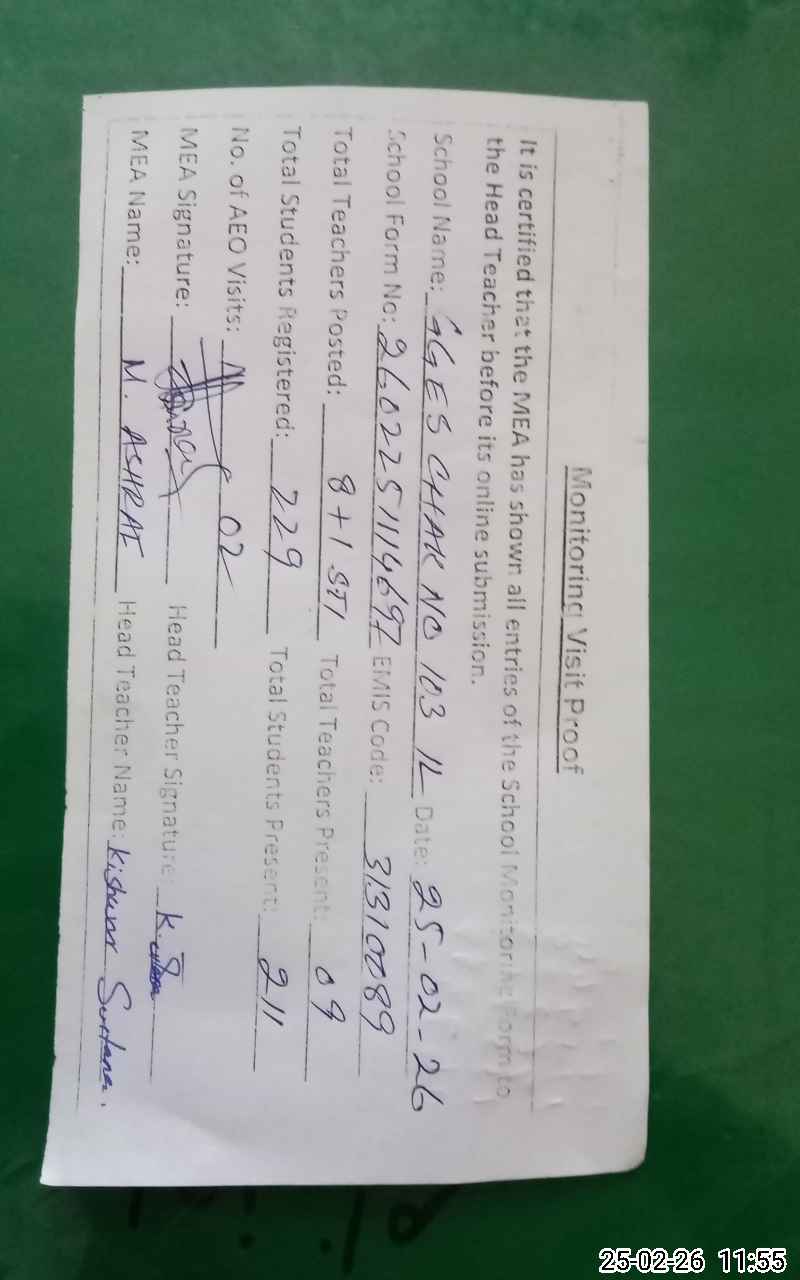 Monitoring Visit Proof
It is certified that the MEA has shown all entries of the School Monitoring Form to
the Head Teacher before its online submission.
School Name: GGES CHAK NO 103 1L Date: 25-02-26
School Form No: 2602251114697 EMIS Code: 31310089
Total Teachers Posted: 8+1 STI Total Teachers Present: 09
Total Students Registered: 229 Total Students Present: 211
No. of AEO Visits: 02
MEA Signature: Head Teacher Signature:
MEA Name: M. ASHRAF Head Teacher Name: Kishwar Sultana.
25-02-26 11:55